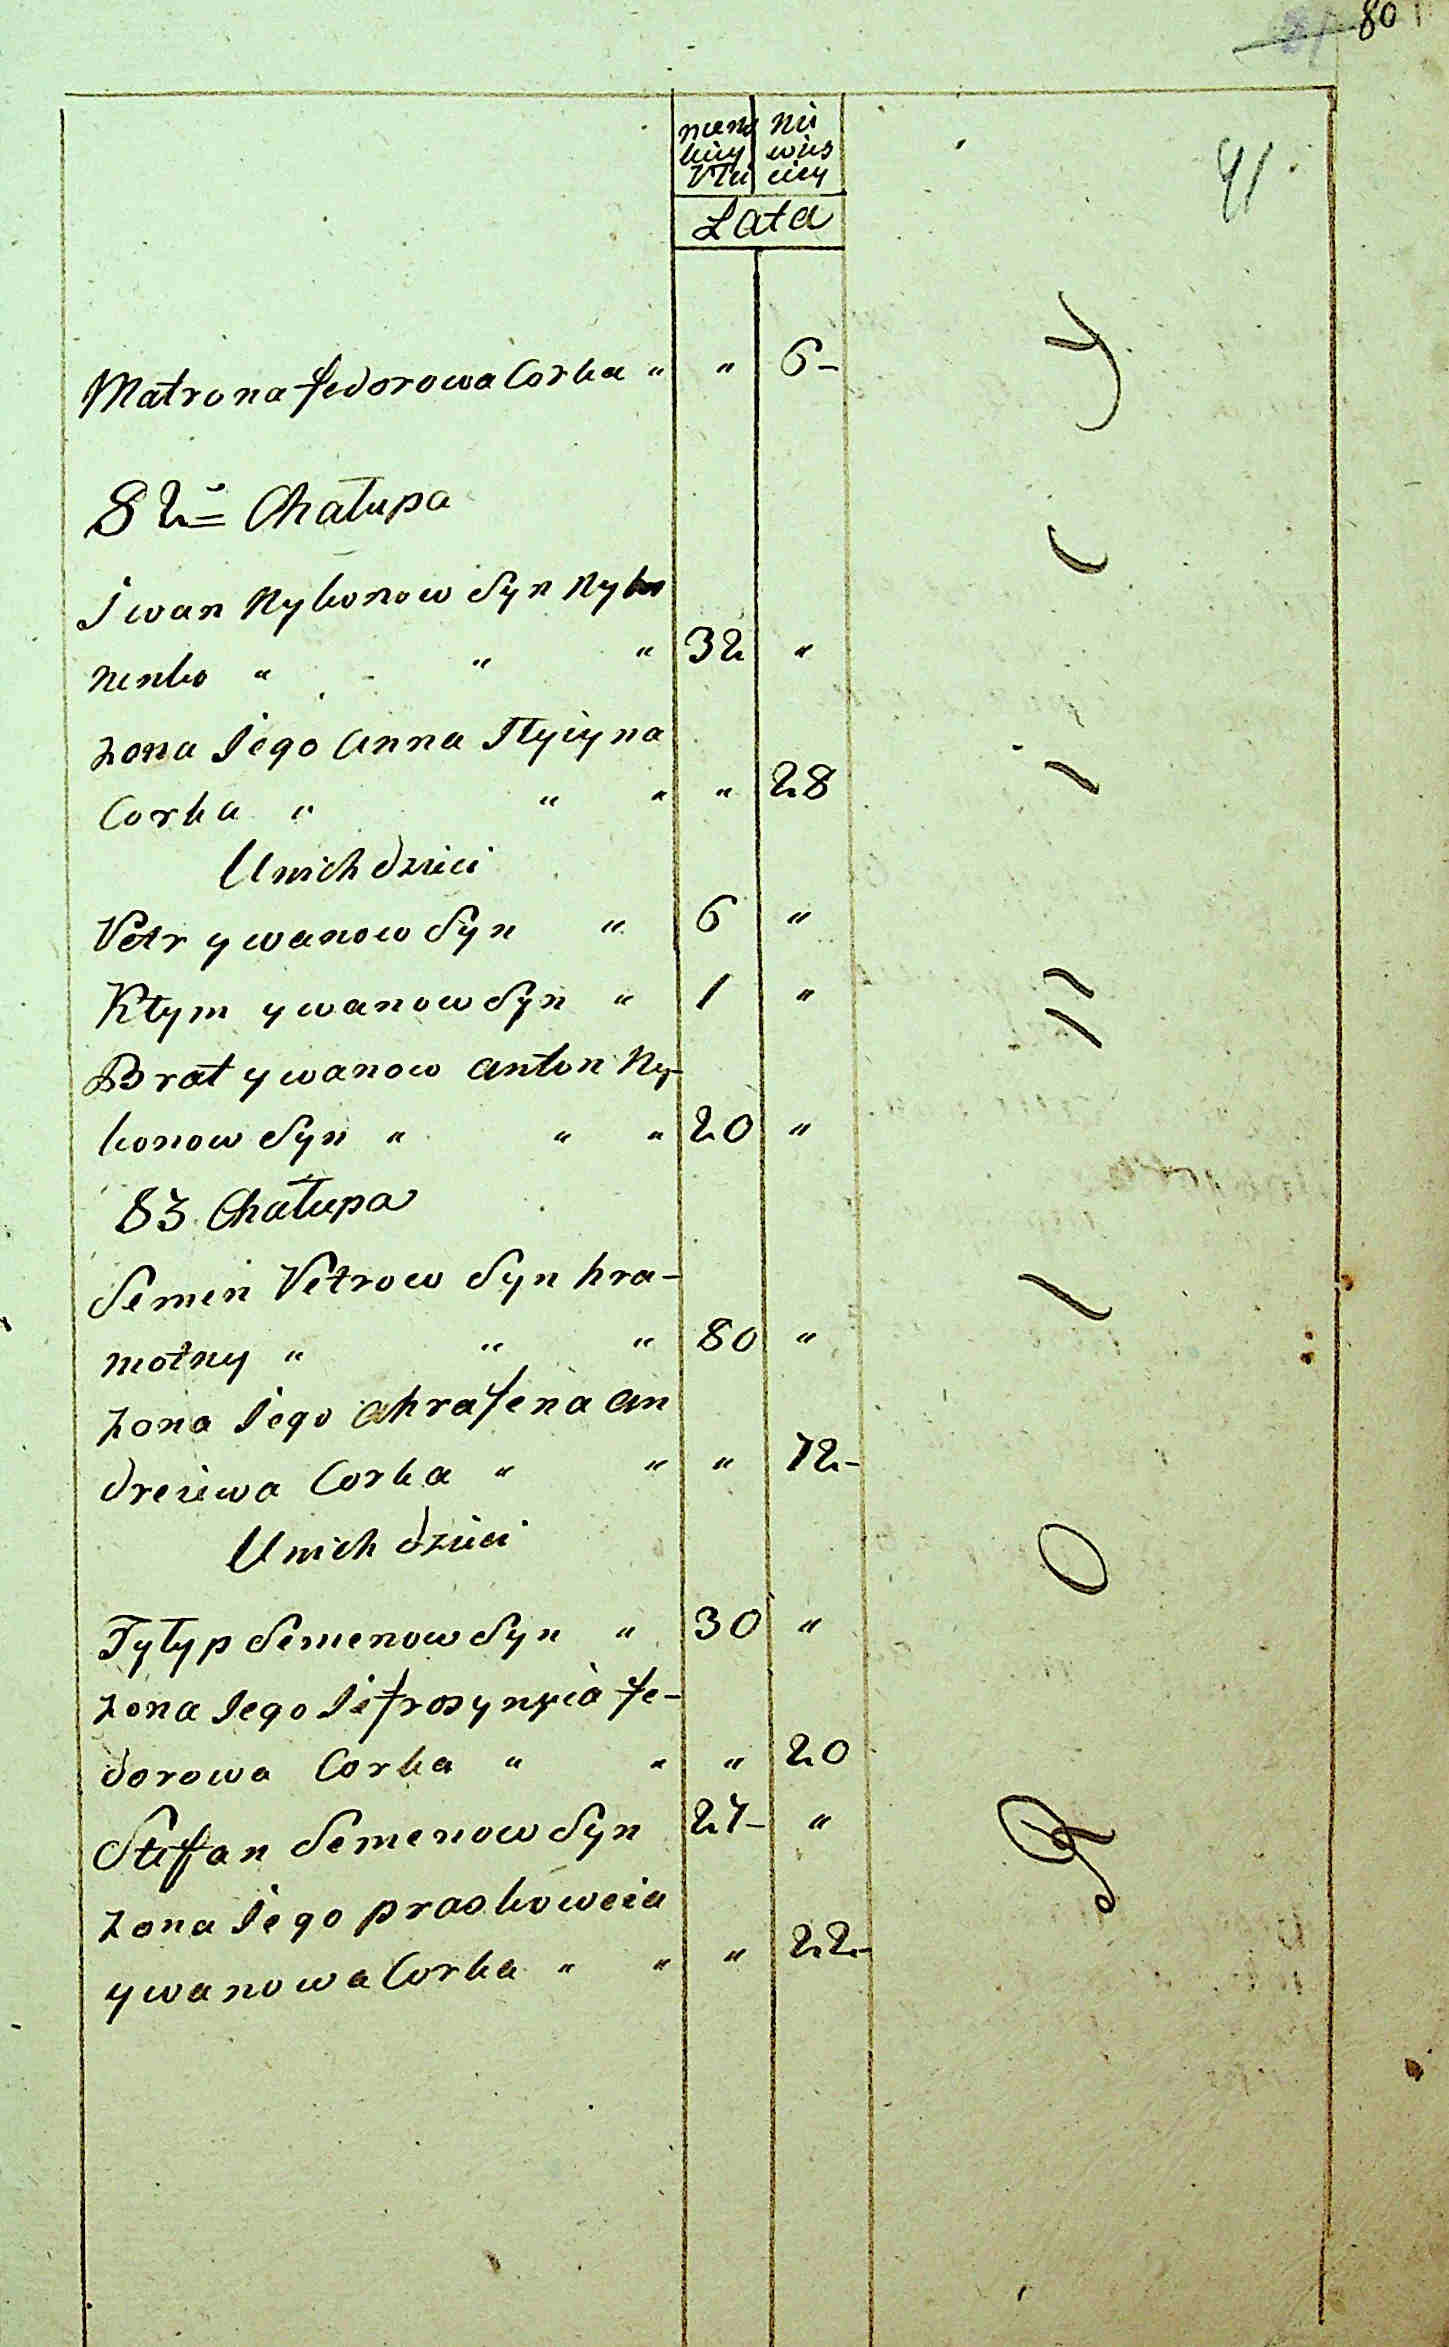 80
41.
męs
kiey
Płci
nie
wies
ciey
Lata
Matrona fedorowa Corka " " 6-
82= Chałupa
Iwan Nykonow Syn Nyko
nenko " " " 32 "
żona Jego Anna Illyiyna
Corka " " " " 28
U nich dzieci
Petr ywanow Syn " 6 "
Kłym ywanow Syn " 1 "
Brat ywanow anton Ny-
konow Syn " " " 20 "
83 Chałupa
Semen Petrow Syn hra-
motny " " " 80 "
żona Jego ahrafena an
dreiewa Corka " " " 72-
U nich dzieci
Fyłyp Semenow Syn " 30 "
żona Jego Jefrosynyia fe-
dorowa Corka " " " 20
Steffan Semenow Syn 27- "
żona Jego praskoweia
ywanowa Corka " " " 22-